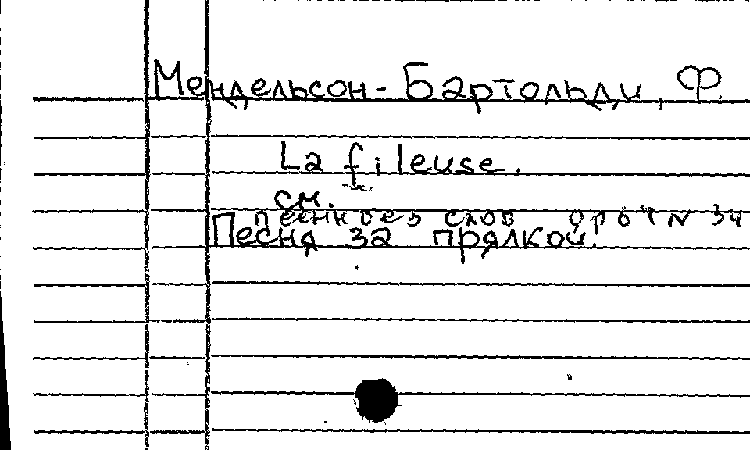 Мендельсон-Бартольди, Ф.
La fileuse.
см.
песни без слов ор 67 N 34
Песня за прялкой.